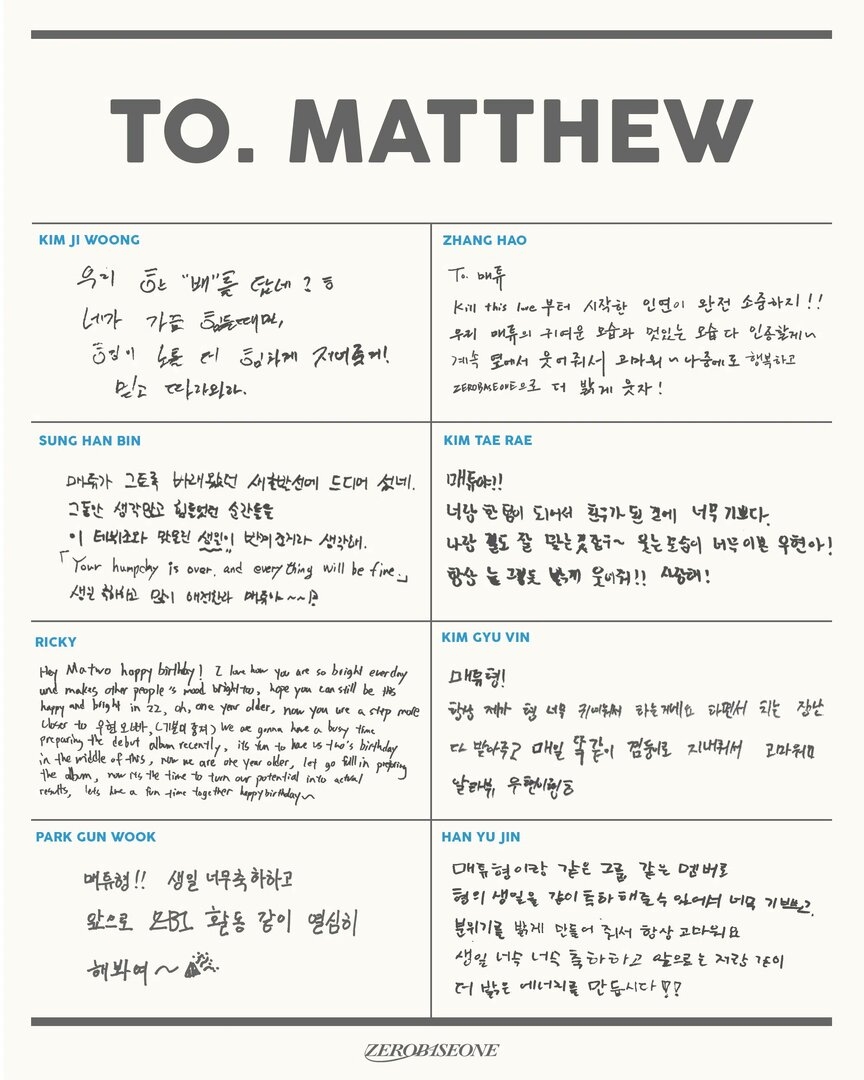 TO. MATTHEW
KIM JI WOONG
우리 "배"를
네가 가끔 힘들때면,
형이 노를 더 힘차게 저어줄게!
믿고 따라와라.
ZHANG HAO
To. 매튜
Kill this love부터 시작한 인연이 완전 소중하지!!
우리 매튜의 귀여운 모습과 멋있는 모습 다 인정할게~
계속 옆에서 웃어줘서 고마워~ 나중에도 행복하고
ZEROBASEONE으로 더 밝게 웃자!
SUNG HAN BIN
매튜가 그토록 바래왔던 새출발선에 드디어 섰네.
그동안 생각많고 힘들었던 순간들을
이 데뷔조와 맞물린 생일이 반겨준거라 생각해.
「Your humpchy is over, and everything will be fine.」
생일 축하하고 많이 애정한다 매튜야~~!
KIM TAE RAE
매튜야!!
너랑 한 팀이 되어서 친구가 된 것에 너무 기쁘다.
나랑 결도 잘 맞는 친구~ 웃는 모습이 너무 이쁜 우현아!
항상 늘 그렇듯 밝게 웃어줘!! 사랑해!
RICKY
Hey Matwo happy birthday! I love how you are so bright everday
und makes other people's mood bright too, hope you can still be this
happy and bright in 22, oh, one year older, now you are a step more
closer to 우현오빠, (기분이 좋져) We are gonna have a busy time
preparing the debut album recently, its fun to have us two's birthday
in the middle of this, now we are one year older, let go full in preparing
the album, now its the time to turn our potential into actual
results, lets have a fun time together happy birthday~
KIM GYU VIN
매튜형!
항상 제가 형 너무 귀여워서 하는거예요 다면서 치는 장난
다 받아주고 매일 똑같이 껌딱지로 지내줘서 고마워!!
알라뷰, 우현이형
PARK GUN WOOK
매튜형!! 생일 너무 축하하고
앞으로 ZB1 활동 같이 열심히
해봐여~
HAN YU JIN
매튜형이랑 같은 그룹 같은 멤버로
형의 생일을 같이 축하해줄 수 있어서 너무 기쁘고,
분위기를 밝게 만들어 줘서 항상 고마워요
생일 너무 너무 축하하고 앞으로는 저랑 같이
더 밝은 에너지를 만듭시다!!
ZEROBASEONE